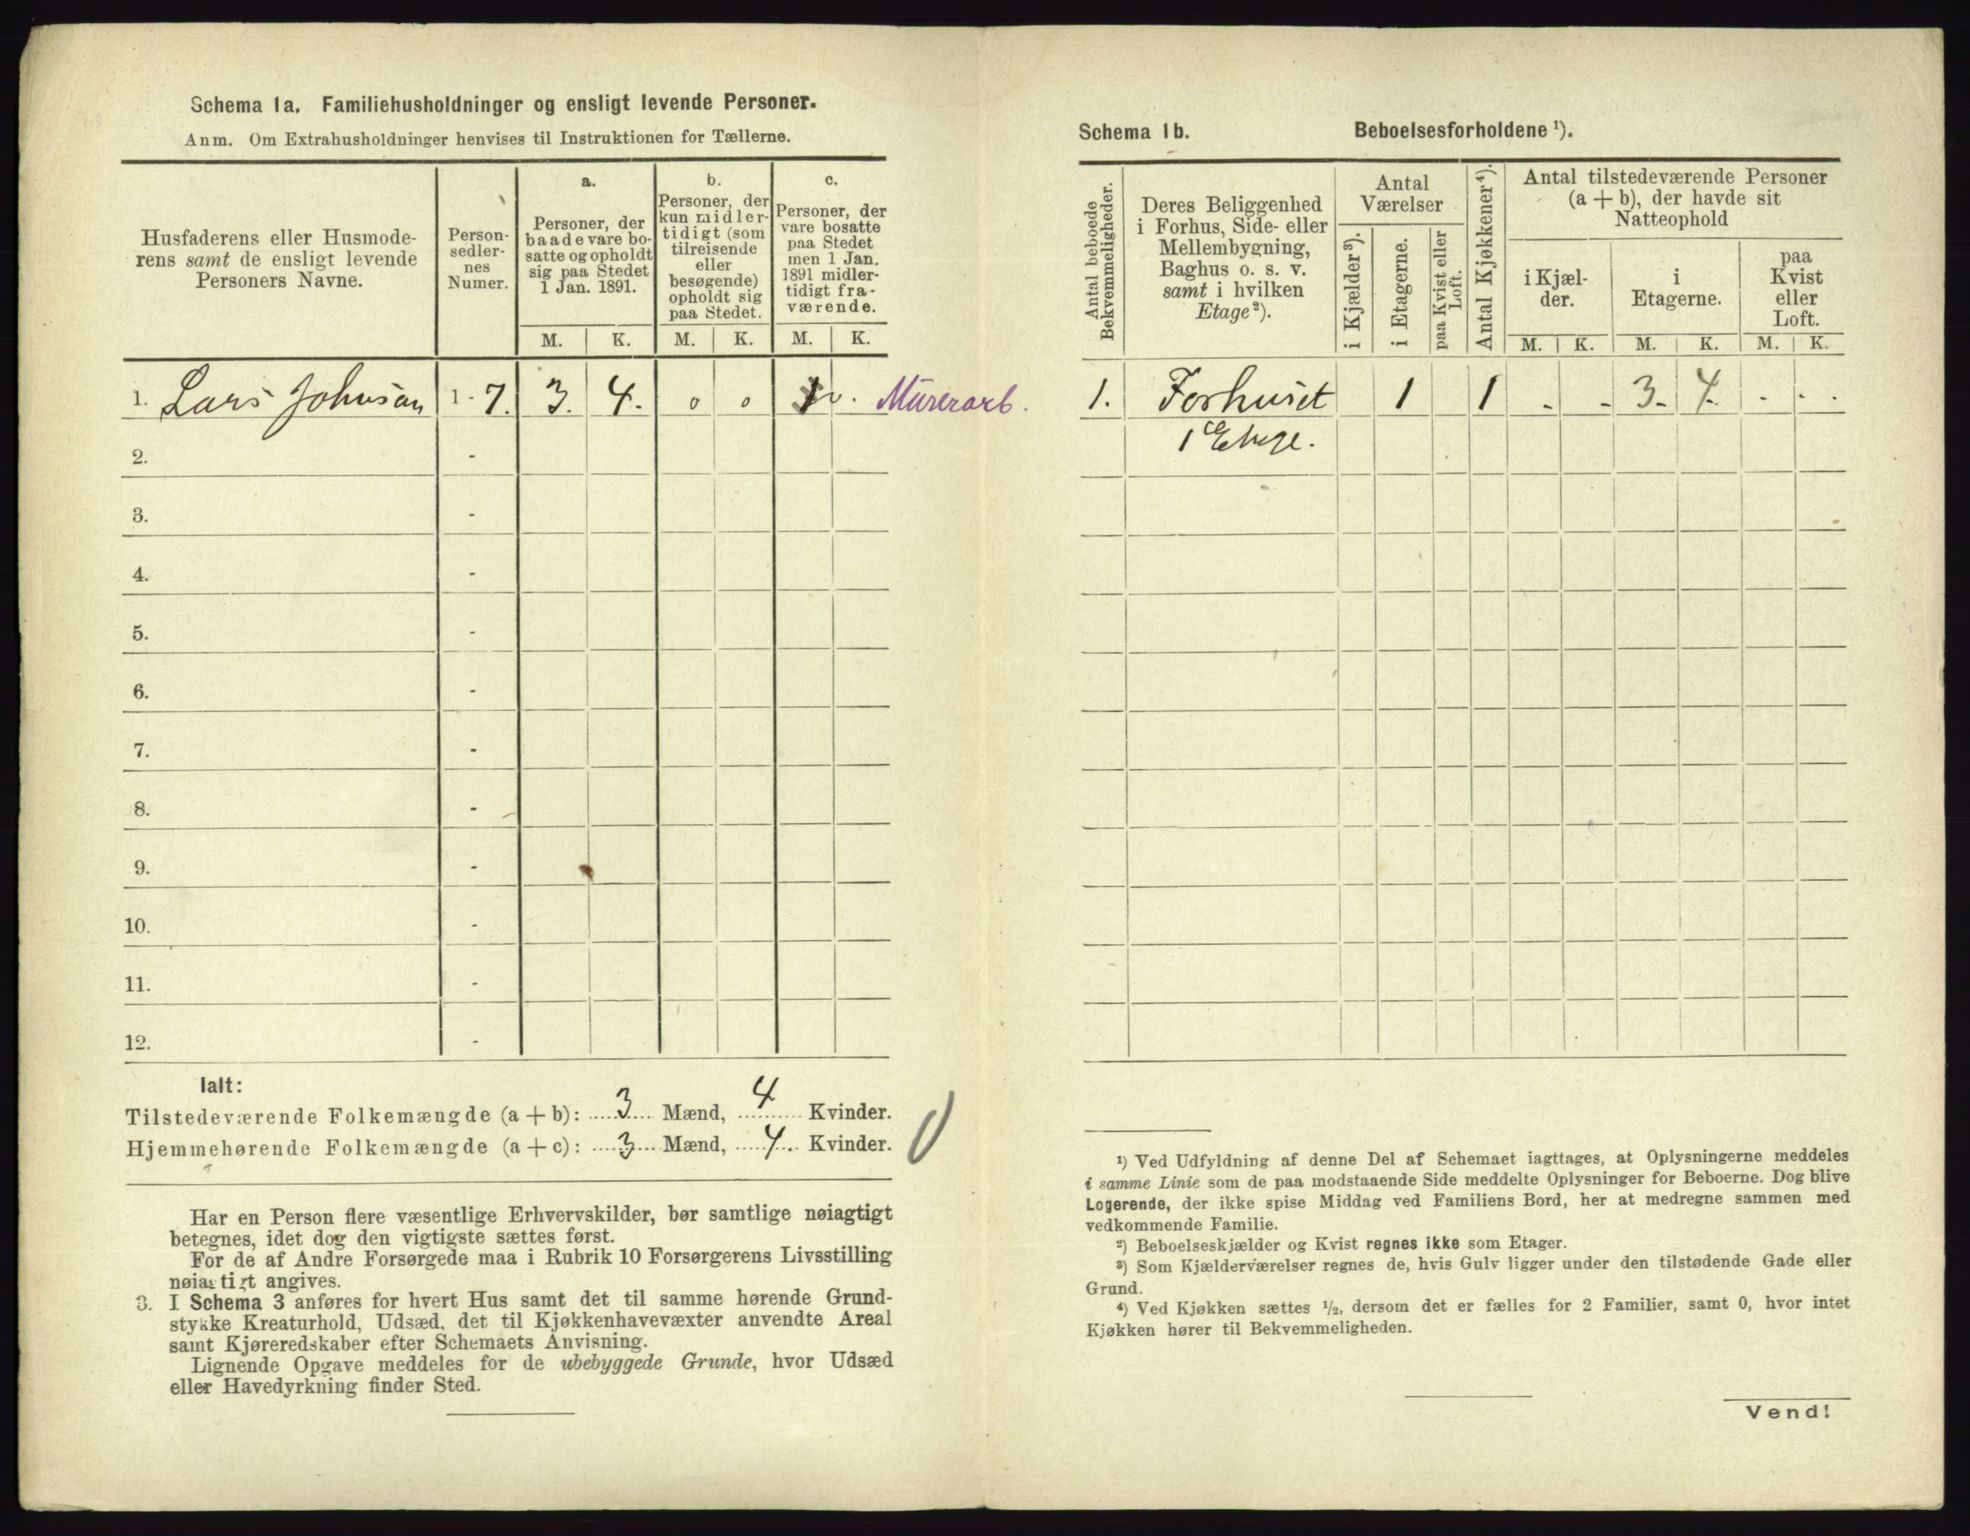 Schema 1a. Familiehusholdninger og ensligt levende Personer.
Anm. Om Extrahusholdninger henvises til Instruktionen for Tællerne.
Husfaderens eller Husmode-
rens samt de ensligt levende
Personers Navne.
Person-
sedler-
nes
Numer.
a.
Personer, der
baade vare bo-
satte og opholdt
sig paa Stedet
1 Jan. 1891.
b.
Personer, der
kun midler-
tidigt (som
tilreisende
eller
besøgende)
opholdt sig
paa Stedet.
c.
Personer, der
vare bosatte
paa Stedet
men 1 Jan.
1891 midler-
tidigt fra-
værende.
M. K. M. K. M. K.
1. Lars Johnsan 1 - 7. 3. 4. 0 0 Murerarb.
2. -
3. -
4. -
5. -
6. -
7. -
8. -
9. -
10. -
11. -
12. -
Ialt:
Tilstedeværende Folkemængde (a + b): 3 Mænd, 4 Kvinder.
Hjemmehørende Folkemængde (a + c): 3 Mænd, 4. Kvinder.
Har en Person flere væsentlige Erhvervskilder, bør samtlige nøiagtigt
betegnes, idet dog den vigtigste sættes først.
For de af Andre Forsørgede maa i Rubrik 10 Forsørgerens Livsstilling
nøiagtigt angives.
3. I Schema 3 anføres for hvert Hus samt det til samme hørende Grund-
stykke Kreaturhold, Udsæd, det til Kjøkkenhavevæxter anvendte Areal
samt Kjøreredskaber efter Schemaets Anvisning.
Lignende Opgave meddeles for de ubebyggede Grunde, hvor Udsæd
eller Havedyrkning finder Sted.
Schema 1b. Beboelsesforholdene ¹).
Antal beboede
Bekvemmeligheder.
Deres Beliggenhed
i Forhus, Side- eller
Mellembygning,
Baghus o. s. v.
samt i hvilken
Etage²).
Antal
Værelser
i Kjælder³).
i Etagerne.
paa Kvist eller
Loft.
Antal Kjøkkener⁴).
Antal tilstedeværende Personer
(a + b), der havde sit
Natteophold
i Kjæl-
der.
i
Etagerne.
paa
Kvist
eller
Loft.
M. K. M. K. M. K.
1. Forhuset 1 1 - - 3. 4. . . .
1ce Etage.
¹) Ved Udfyldning af denne Del af Schemaet iagttages, at Oplysningerne meddeles
i samme Linie som de paa modstaaende Side meddelte Oplysninger for Beboerne. Dog blive
Logerende, der ikke spise Middag ved Familiens Bord, her at medregne sammen med
vedkommende Familie.
²) Beboelseskjælder og Kvist regnes ikke som Etager.
³) Som Kjælderværelser regnes de, hvis Gulv ligger under den tilstødende Gade eller
Grund.
⁴) Ved Kjøkken sættes ½, dersom det er fælles for 2 Familier, samt 0, hvor intet
Kjøkken hører til Bekvemmeligheden.
Vend!